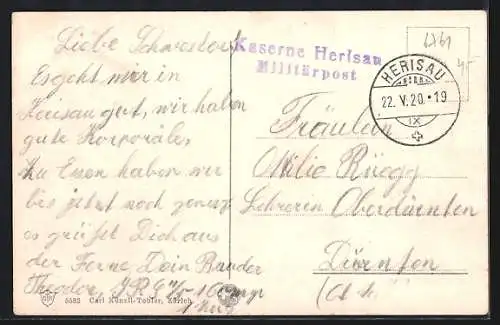 Liebe Schwester!
Es geht mir in
Herisau gut, wir haben
gute Korporäle,
Zu Essen haben wir
bis jetzt noch genug
es grüßt Dich aus
der Ferne Dein Bruder
Theodor,
Kaserne Herisau
Militärpost
HERISAU
22. V. 20.-19
IX
Fräulein
Milie Rüegg
Lehrerin Oberdürnten
Dürnten
5582 Carl Künzli-Tobler, Zürich